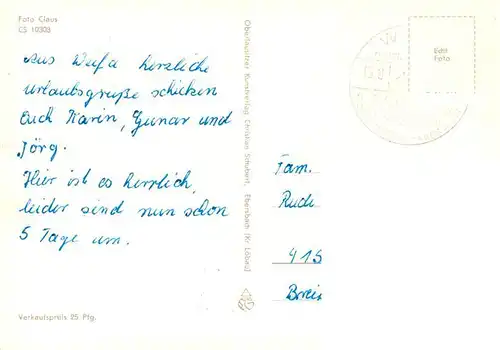 Foto Claus
CS 10303
Aus Weifa herzliche
Urlaubsgrüße schicken
Euch Karin, Gunar und
Jörg.
Hier ist es herrlich,
leider sind nun schon
5 Tage um.
Verkaufspreis 25 Pfg.
Oberlausitzer Kunstverlag Christian Schubert, Ebersbach (Kr. Löbau)
Echt
Foto
Fam.
Rudi
415
Breis